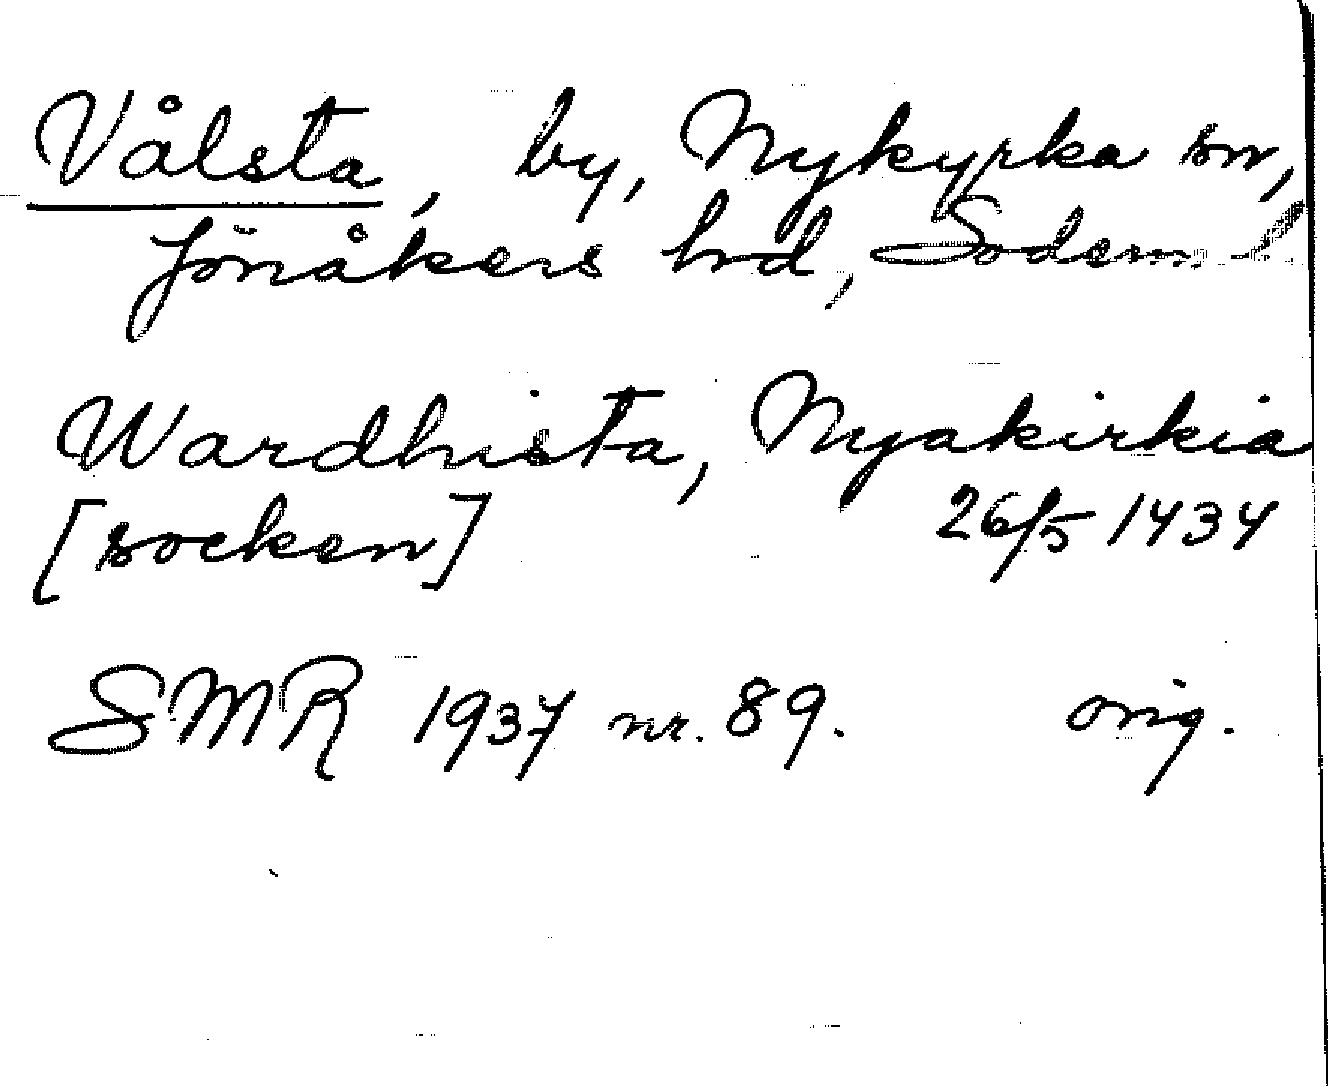 Vålsta, by, Nykyrka sn,
Jönåkers hrd, Söderm.l.
Wardhista, Nyakirkia
[socken] 26/5 1434
SMR 1937 nr. 89. orig.